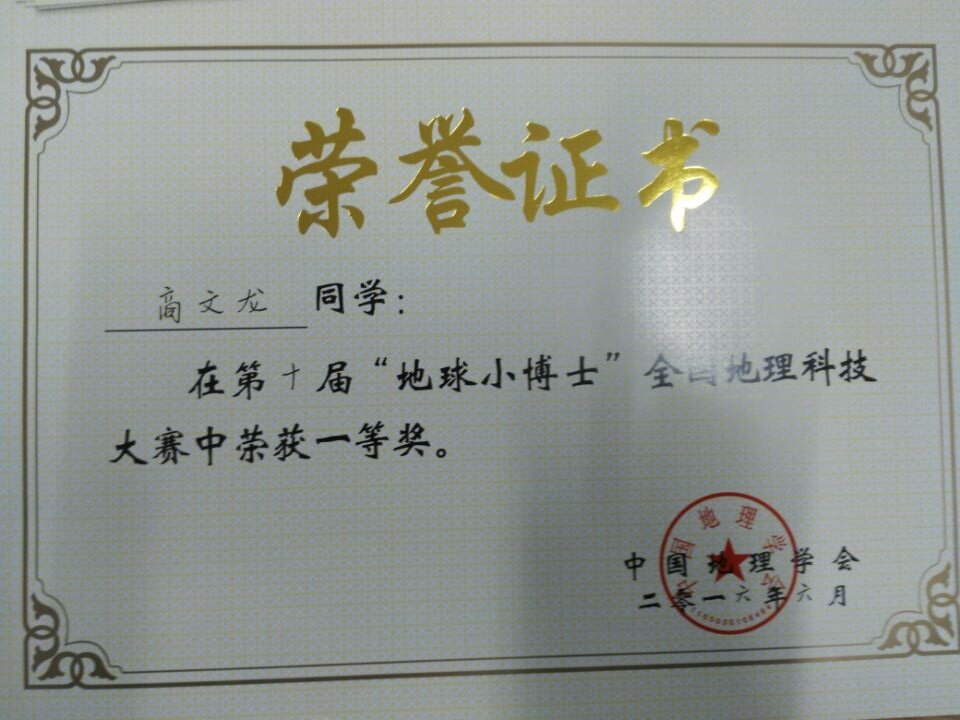 荣誉证书
商文龙 同学：
在第十届“地球小博士”全国地理科技
大赛中荣获一等奖。
中国地理学会
二零一六年六月
中国地理学会